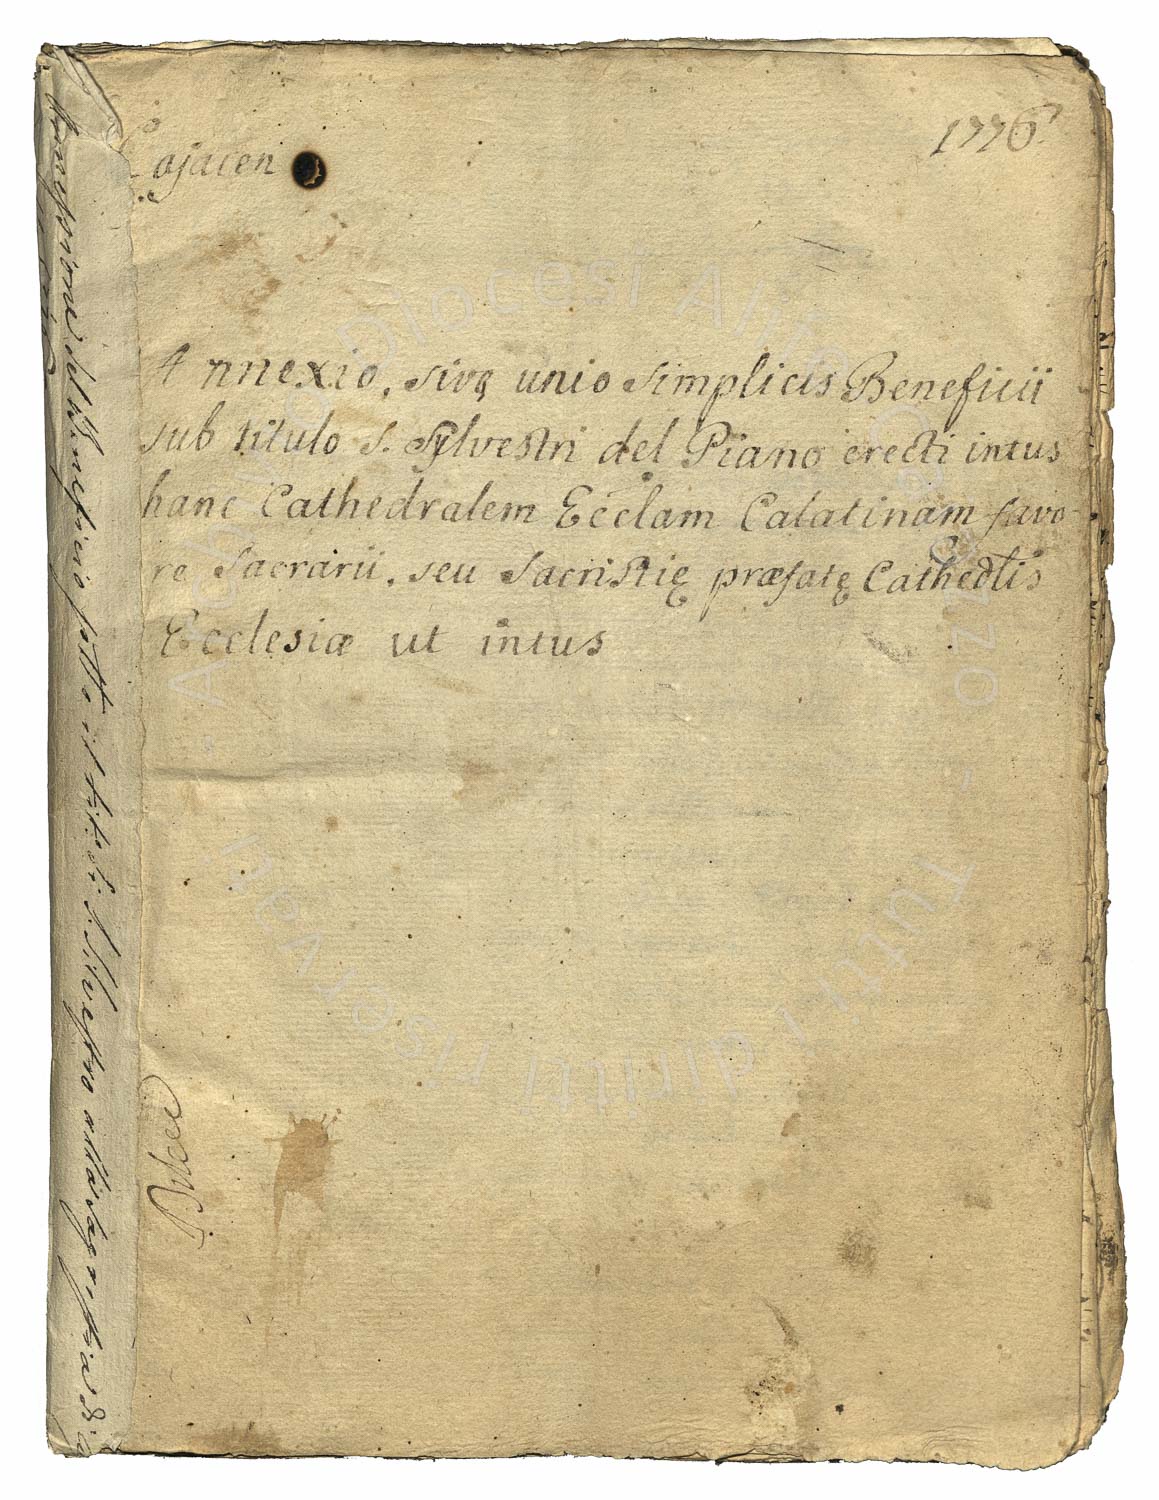 1776.
Cajacen
Annexio, sivę unio simplicis Beneficii
sub titulo S. Sylvestri del Piano erecti intus
hanc Cathedralem Ecclam Calatinam favo-
re Sacrarii, seu Sacristię præfatę Cathedlis
Ecclesiæ ut intus
Annessione del Beneficio sotto il tit.o di S. Silvestro alla Sagrestia di
Archivio Diocesi Alife Caiazzo - Tutti i diritti riservati -